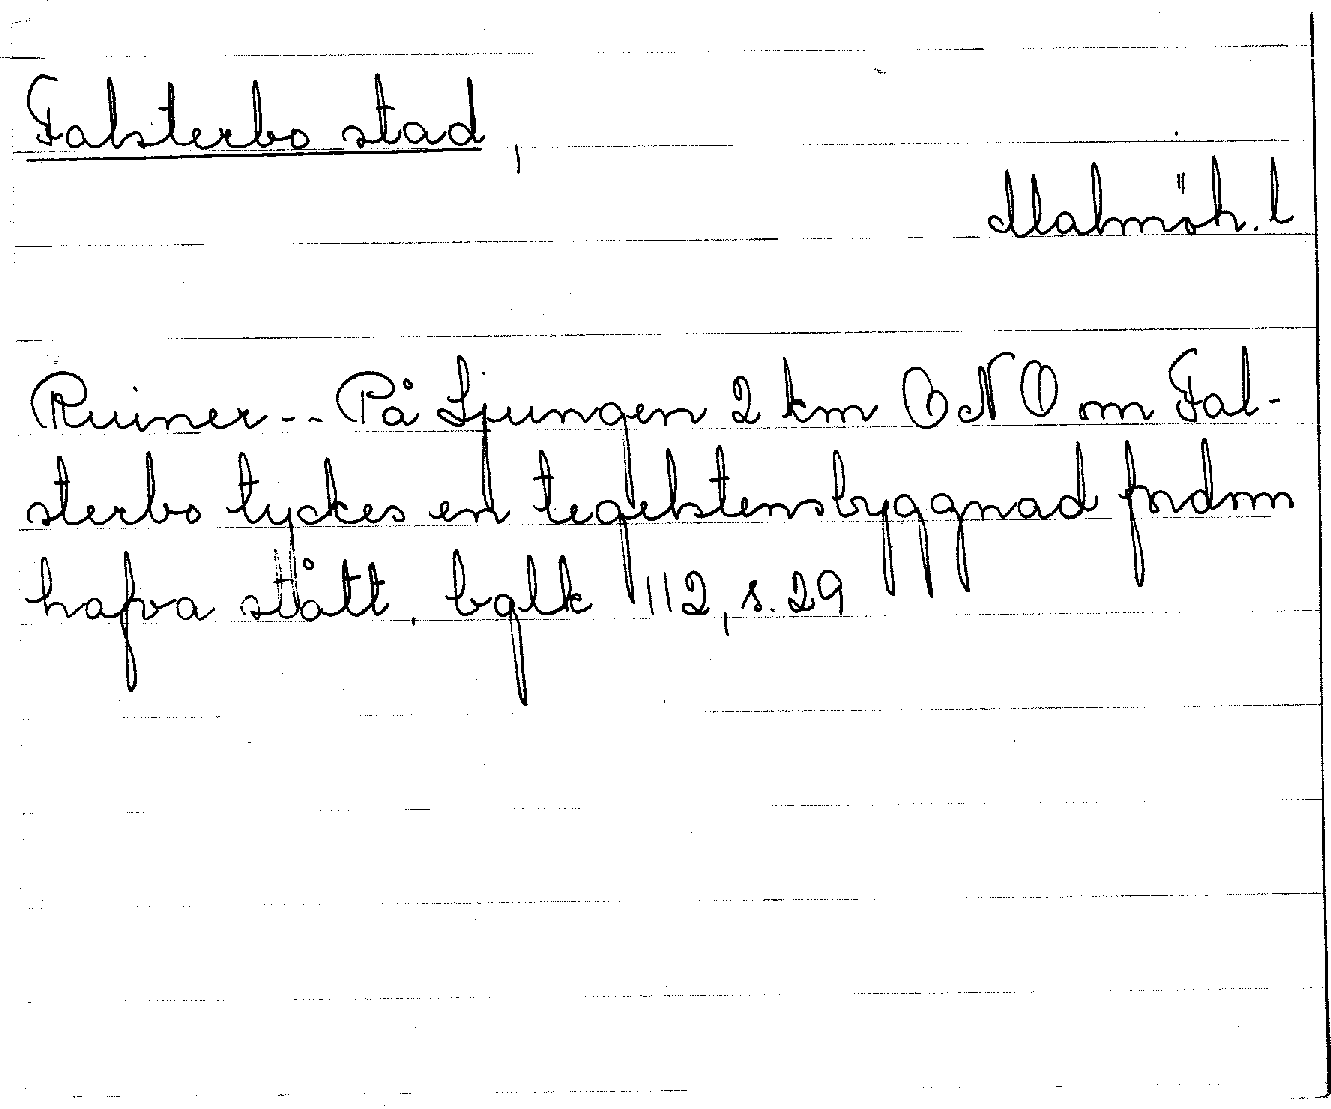 Falsterbo stad,
Malmöh. l
Ruiner -- På Ljungen 2 km ONO om Fal-
sterbo tyckes en tegelstensbyggnad fordom
hafva stått. bglk 112, s. 29